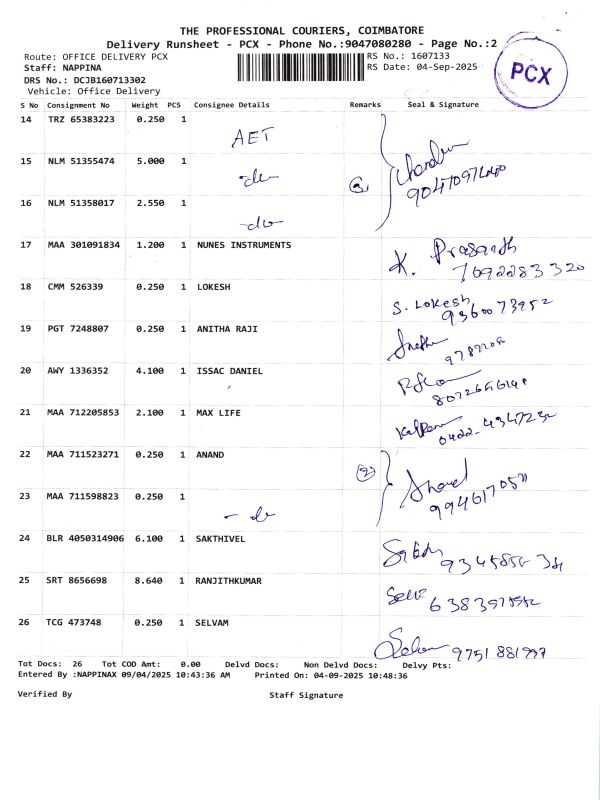 THE PROFESSIONAL COURIERS, COIMBATORE
Delivery Runsheet - PCX - Phone No.:9047080280 - Page No.:2
Route: OFFICE DELIVERY PCX
RS No.: 1607133
Staff: NAPPINA
RS Date: 04-Sep-2025
PCX
DRS No.: DCJB160713302
Vehicle: Office Delivery
S No Consignment No Weight PCS Consignee Details Remarks Seal & Signature
14 TRZ 65383223 0.250 1
AET
15 NLM 51355474 5.000 1
-do-
③
16 NLM 51358017 2.550 1
-do-
17 MAA 301091834 1.200 1 NUNES INSTRUMENTS
K. Prasanth
7092283320
18 CMM 526339 0.250 1 LOKESH
S. Lokesh
9360073952
19 PGT 7248807 0.250 1 ANITHA RAJI
20 AWY 1336352 4.100 1 ISSAC DANIEL
21 MAA 712205853 2.100 1 MAX LIFE
22 MAA 711523271 0.250 1 ANAND
② Anand
9946170511
23 MAA 711598823 0.250 1
- do
24 BLR 4050314906 6.100 1 SAKTHIVEL
25 SRT 8656698 8.640 1 RANJITHKUMAR
26 TCG 473748 0.250 1 SELVAM
9751881997
Tot Docs: 26 Tot COD Amt: 0.00 Delvd Docs: Non Delvd Docs: Delvy Pts:
Entered By :NAPPINAX 09/04/2025 10:43:36 AM Printed On: 04-09-2025 10:48:36
Verified By Staff Signature